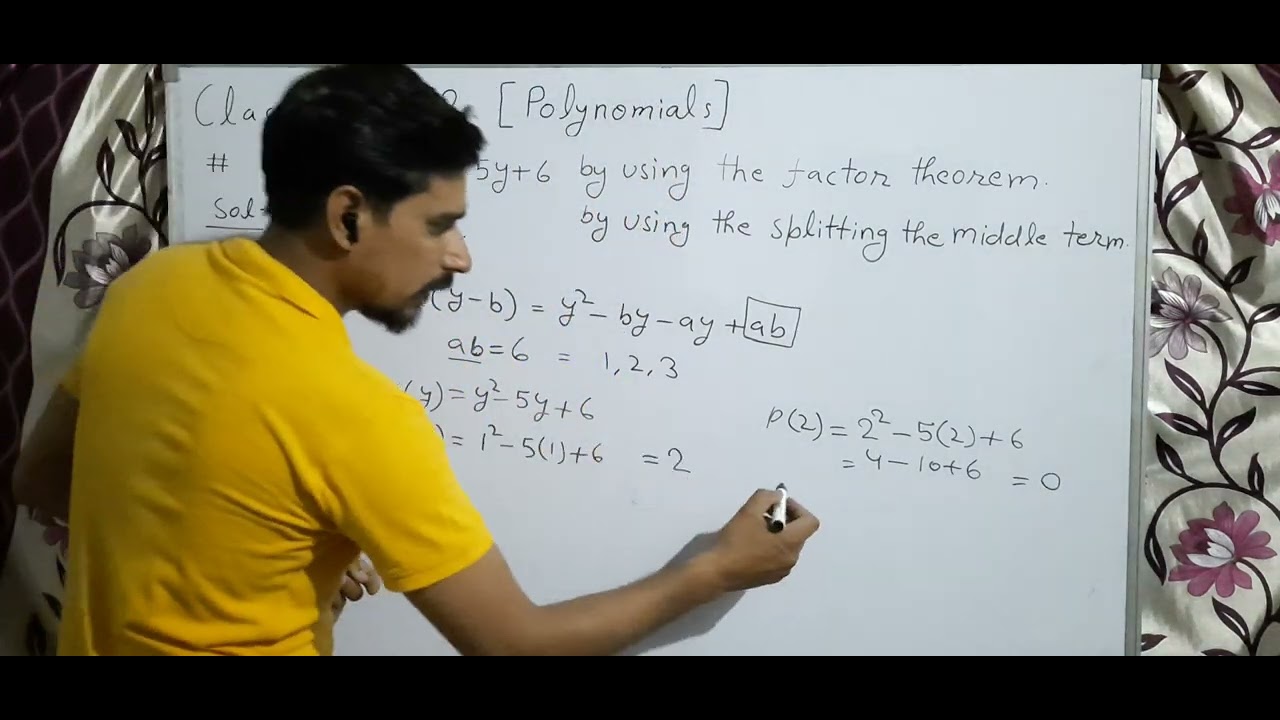 [Polynomials]
# 5y+6 by using the factor theorem.
by using the splitting the middle term.
(y-b) = y² - by - ay + ab
ab = 6 = 1, 2, 3
y) = y² - 5y + 6
) = 1² - 5(1) + 6 = 2
P(2) = 2² - 5(2) + 6
= 4 - 10 + 6 = 0